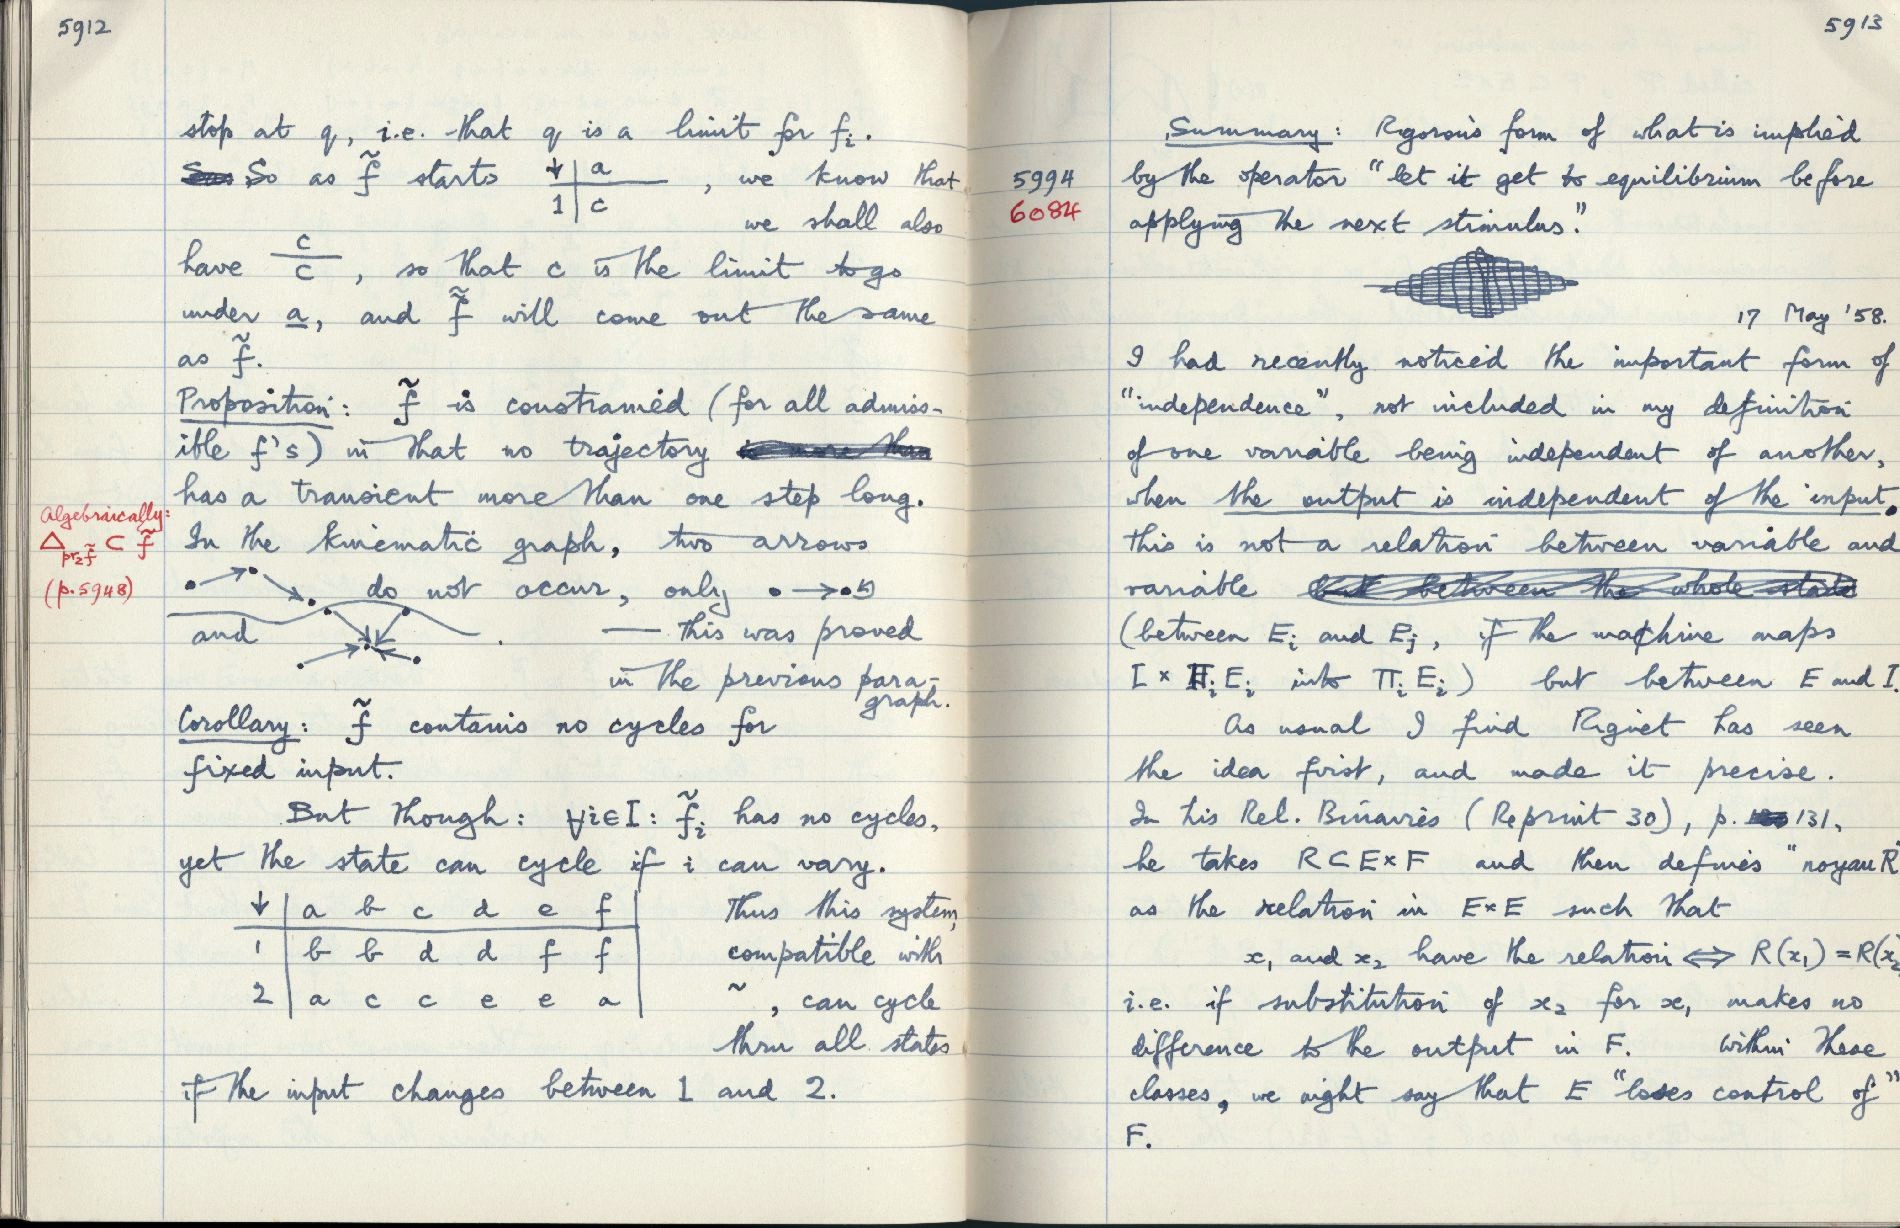 5912
stop at q, i.e. that q is a limit for fᵢ.
So as f̃ starts ↓ | a , we know that
1 | c we shall also
have c/c , so that c is the limit to go
under a, and f̃̃ will come out the same
as f̃.
Proposition: f̃ is constrained (for all admiss-
ible f's) in that no trajectory
has a transient more than one step long.
Algebraically:
Δ_pr₂f̃ ⊂ f̃
(p.5948)
In the kinematic graph, two arrows
do not occur, only
and . — this was proved
in the previous para-
graph.
Corollary: f̃ contains no cycles for
fixed input.
But though: ∀i∈I: f̃ᵢ has no cycles,
yet the state can cycle if i can vary.
↓ | a b c d e f | Thus this system,
1 | b b d d f f | compatible with
2 | a c c e e a | ~ , can cycle
thru all states
if the input changes between 1 and 2.
5913
Summary: Rigorous form of what is implied
5994
6084
by the operator "let it get to equilibrium before
applying the next stimulus."
17 May '58.
I had recently noticed the important form of
"independence", not included in my definition
of one variable being independent of another,
when the output is independent of the input.
this is not a relation between variable and
variable
(between Eᵢ and Eⱼ, if the machine maps
I × Πᵢ Eᵢ into Πᵢ Eᵢ) but between E and I.
As usual I find Riguet has seen
the idea first, and made it precise.
In his Rel. Binaires (Reprint 30), p. 131,
he takes R ⊂ E×F and then defines "noyau R"
as the relation in E×E such that
x₁ and x₂ have the relation ⟺ R(x₁) = R(x₂
i.e. if substitution of x₂ for x₁ makes no
difference to the output in F. Within these
classes, we might say that E "loses control of"
F.